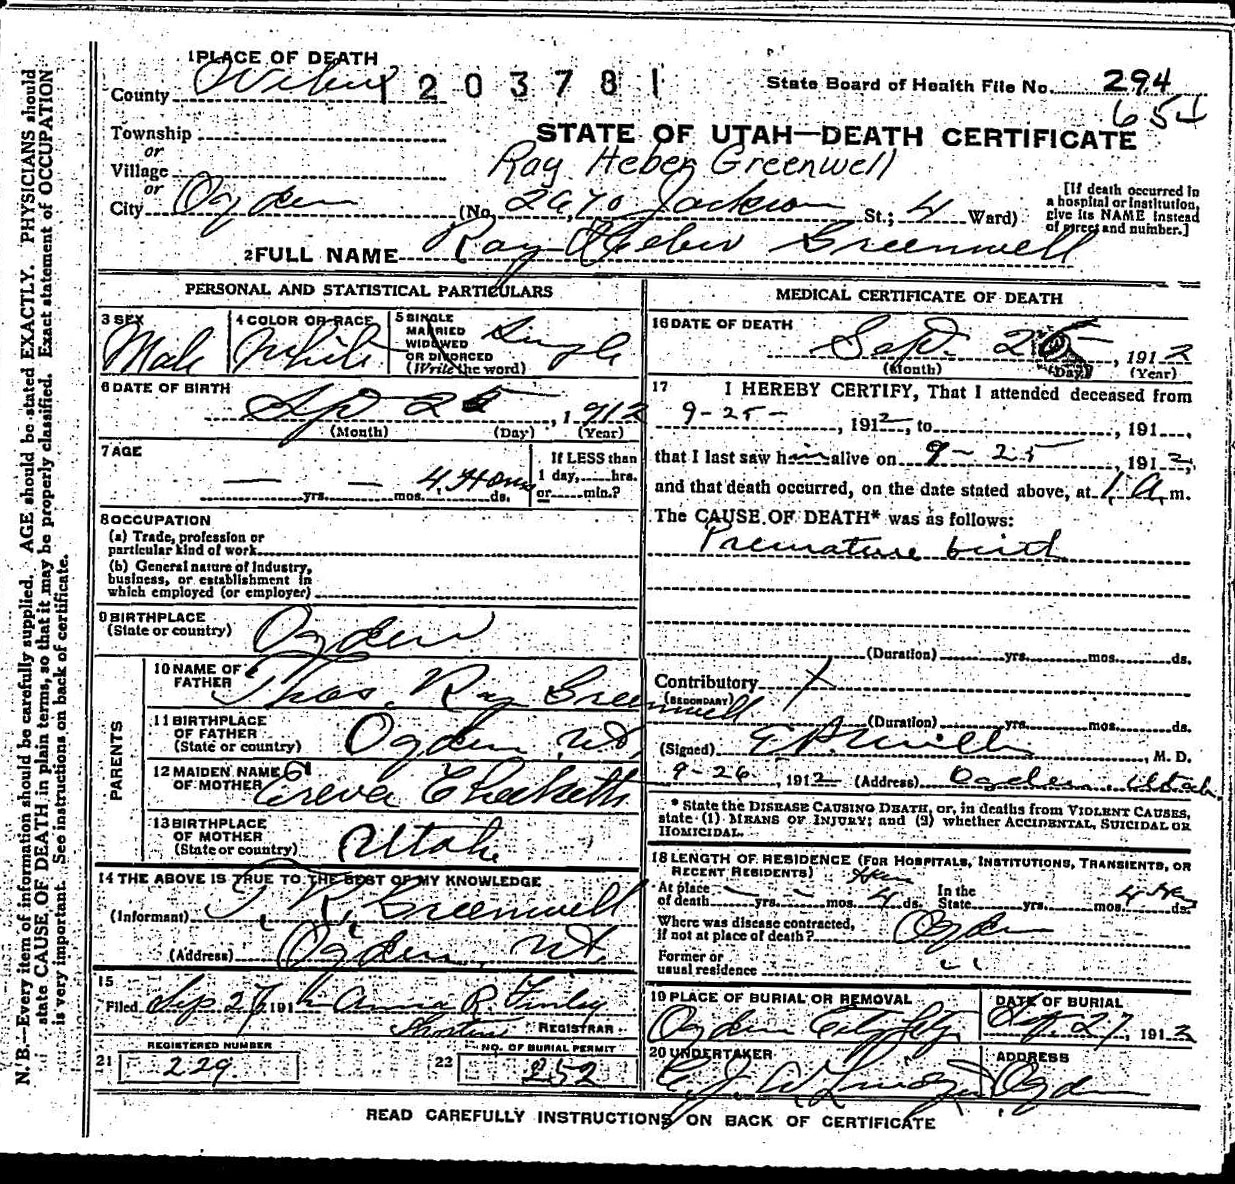 1 PLACE OF DEATH
County Weber 1203781 State Board of Health File No. 294
654
Township
or
Village
or
STATE OF UTAH—DEATH CERTIFICATE
Ray Heber Greenwell
City Ogden (No. 2670 Jackson St.; 4 Ward)
[If death occurred in
a hospital or institution,
give its NAME instead
of street and number.]
2 FULL NAME Ray Heber Greenwell
PERSONAL AND STATISTICAL PARTICULARS
3 SEX
Male
4 COLOR OR RACE
White
5 SINGLE
MARRIED
WIDOWED
OR DIVORCED
(Write the word)
Single
6 DATE OF BIRTH
Sep 25, 1912
(Month) (Day) (Year)
7 AGE
— yrs. — mos. 4 Hours ds.
If LESS than
1 day, hrs.
or min.?
8 OCCUPATION
(a) Trade, profession or
particular kind of work
(b) General nature of Industry,
business, or establishment in
which employed (or employer)
9 BIRTHPLACE
(State or country) Ogden
PARENTS
10 NAME OF
FATHER Thos. Ray Greenwell
11 BIRTHPLACE
OF FATHER
(State or country) Ogden Ut.
12 MAIDEN NAME
OF MOTHER Checketts
13 BIRTHPLACE
OF MOTHER
(State or country) Utah
14 THE ABOVE IS TRUE TO THE BEST OF MY KNOWLEDGE
(Informant) T. R. Greenwell
(Address) Ogden, Ut.
15
Filed Sep 27, 1912 Anna R. Finley
REGISTRAR
REGISTERED NUMBER
21 229
NO. OF BURIAL PERMIT
22 252
MEDICAL CERTIFICATE OF DEATH
16 DATE OF DEATH
Sept. 25, 1912
(Month) (Day) (Year)
17 I HEREBY CERTIFY, That I attended deceased from
9-25-, 1912, to , 191
that I last saw him alive on 9-25, 1912,
and that death occurred, on the date stated above, at 1 A. m.
The CAUSE OF DEATH* was as follows:
Premature birth
(Duration) yrs. mos. ds.
Contributory X
(SECONDARY)
(Duration) yrs. mos. ds.
(Signed) , M. D.
9-26, 1912 (Address) Ogden Utah.
* State the DISEASE CAUSING DEATH, or, in deaths from VIOLENT CAUSES,
state (1) MEANS OF INJURY; and (2) whether ACCIDENTAL, SUICIDAL OR
HOMICIDAL.
18 LENGTH OF RESIDENCE (FOR HOSPITALS, INSTITUTIONS, TRANSIENTS, OR
RECENT RESIDENTS)
At place
of death — yrs. — mos. 4 Hrs ds. In the
State yrs. mos. 4 Hrs ds.
Where was disease contracted,
if not at place of death? Ogden
Former or
usual residence " "
19 PLACE OF BURIAL OR REMOVAL
Ogden City
DATE OF BURIAL
Sept. 27, 1912
20 UNDERTAKER
ADDRESS
Ogden
READ CAREFULLY INSTRUCTIONS ON BACK OF CERTIFICATE
N. B.—Every item of information should be carefully supplied. AGE should be stated EXACTLY. PHYSICIANS should
state CAUSE OF DEATH in plain terms, so that it may be properly classified. Exact statement of OCCUPATION
is very important. See instructions on back of certificate.